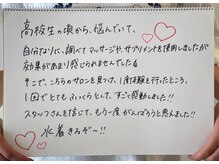 高校生の頃から、悩んでいて、
自分なりに、調べてマッサージや、サプリメントを使用しましたが
効果があまり感じられませんでした
そこで、こちらのサロンを見つけ、1度体験を行ったところ、
1回でとてもふっくらとして、すごく感動しました!!
スタッフさんを信じて、もう一度がんばろうと思えました!!
水着きるぞ〜!!